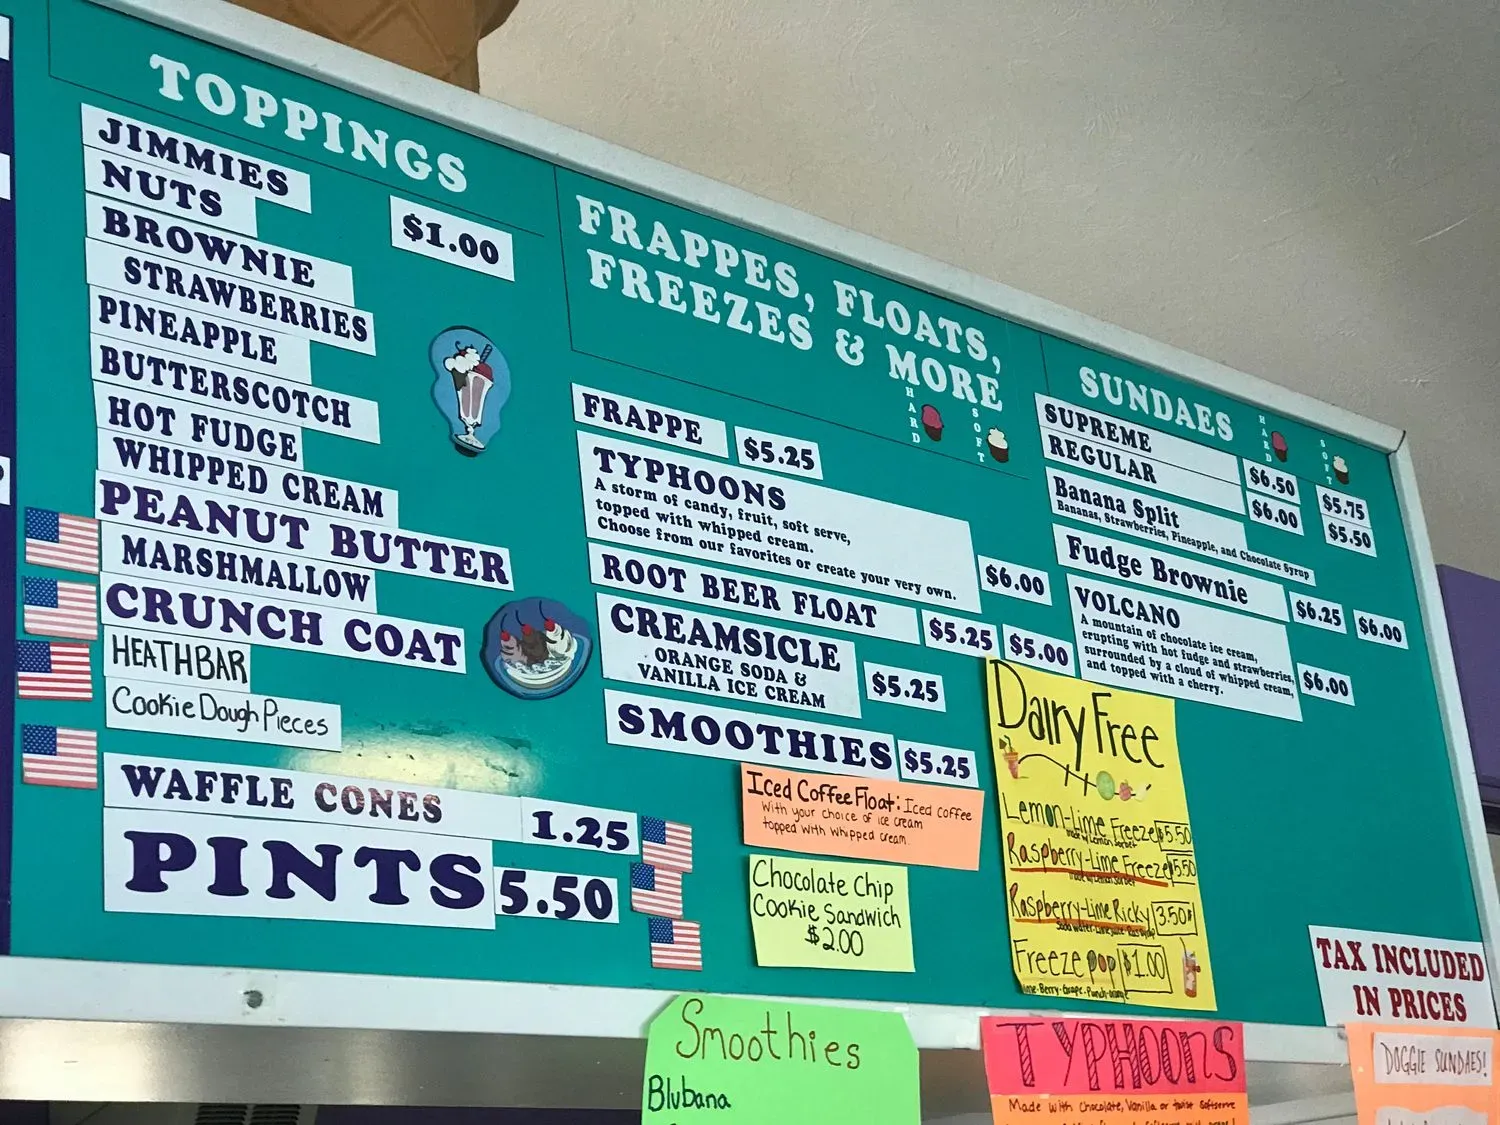 TOPPINGS
JIMMIES
NUTS
$1.00
BROWNIE
STRAWBERRIES
PINEAPPLE
BUTTERSCOTCH
HOT FUDGE
WHIPPED CREAM
PEANUT BUTTER
MARSHMALLOW
CRUNCH COAT
HEATHBAR
Cookie Dough Pieces
WAFFLE CONES 1.25
PINTS 5.50
FRAPPES, FLOATS,
FREEZES & MORE
HARD
SOFT
FRAPPE $5.25
TYPHOONS
A storm of candy, fruit, soft serve,
topped with whipped cream.
Choose from our favorites or create your very own.
$6.00
ROOT BEER FLOAT $5.25 $5.00
CREAMSICLE
ORANGE SODA &
VANILLA ICE CREAM
$5.25
SMOOTHIES $5.25
Iced Coffee Float: Iced coffee
With your choice of ice cream
topped with whipped cream.
Chocolate Chip
Cookie Sandwich
$2.00
SUNDAES
HARD
SOFT
SUPREME $6.50 $5.75
REGULAR $6.00 $5.50
Banana Split
Bananas, Strawberries, Pineapple, and Chocolate Syrup
Fudge Brownie $6.25 $6.00
VOLCANO
A mountain of chocolate ice cream,
erupting with hot fudge and strawberries,
surrounded by a cloud of whipped cream,
and topped with a cherry.
$6.00
Dairy Free
Lemon-Lime Freeze $5.50
made w/ Lemon Sorbet
Raspberry-Lime Freeze $5.50
made w/ Lemon Sorbet
Raspberry-Lime Ricky 3.50
Freeze pop $1.00
TAX INCLUDED
IN PRICES
Smoothies
Blubana
TYPHOONS
Made with Chocolate, Vanilla or twist Softserve
DOGGIE SUNDAES!